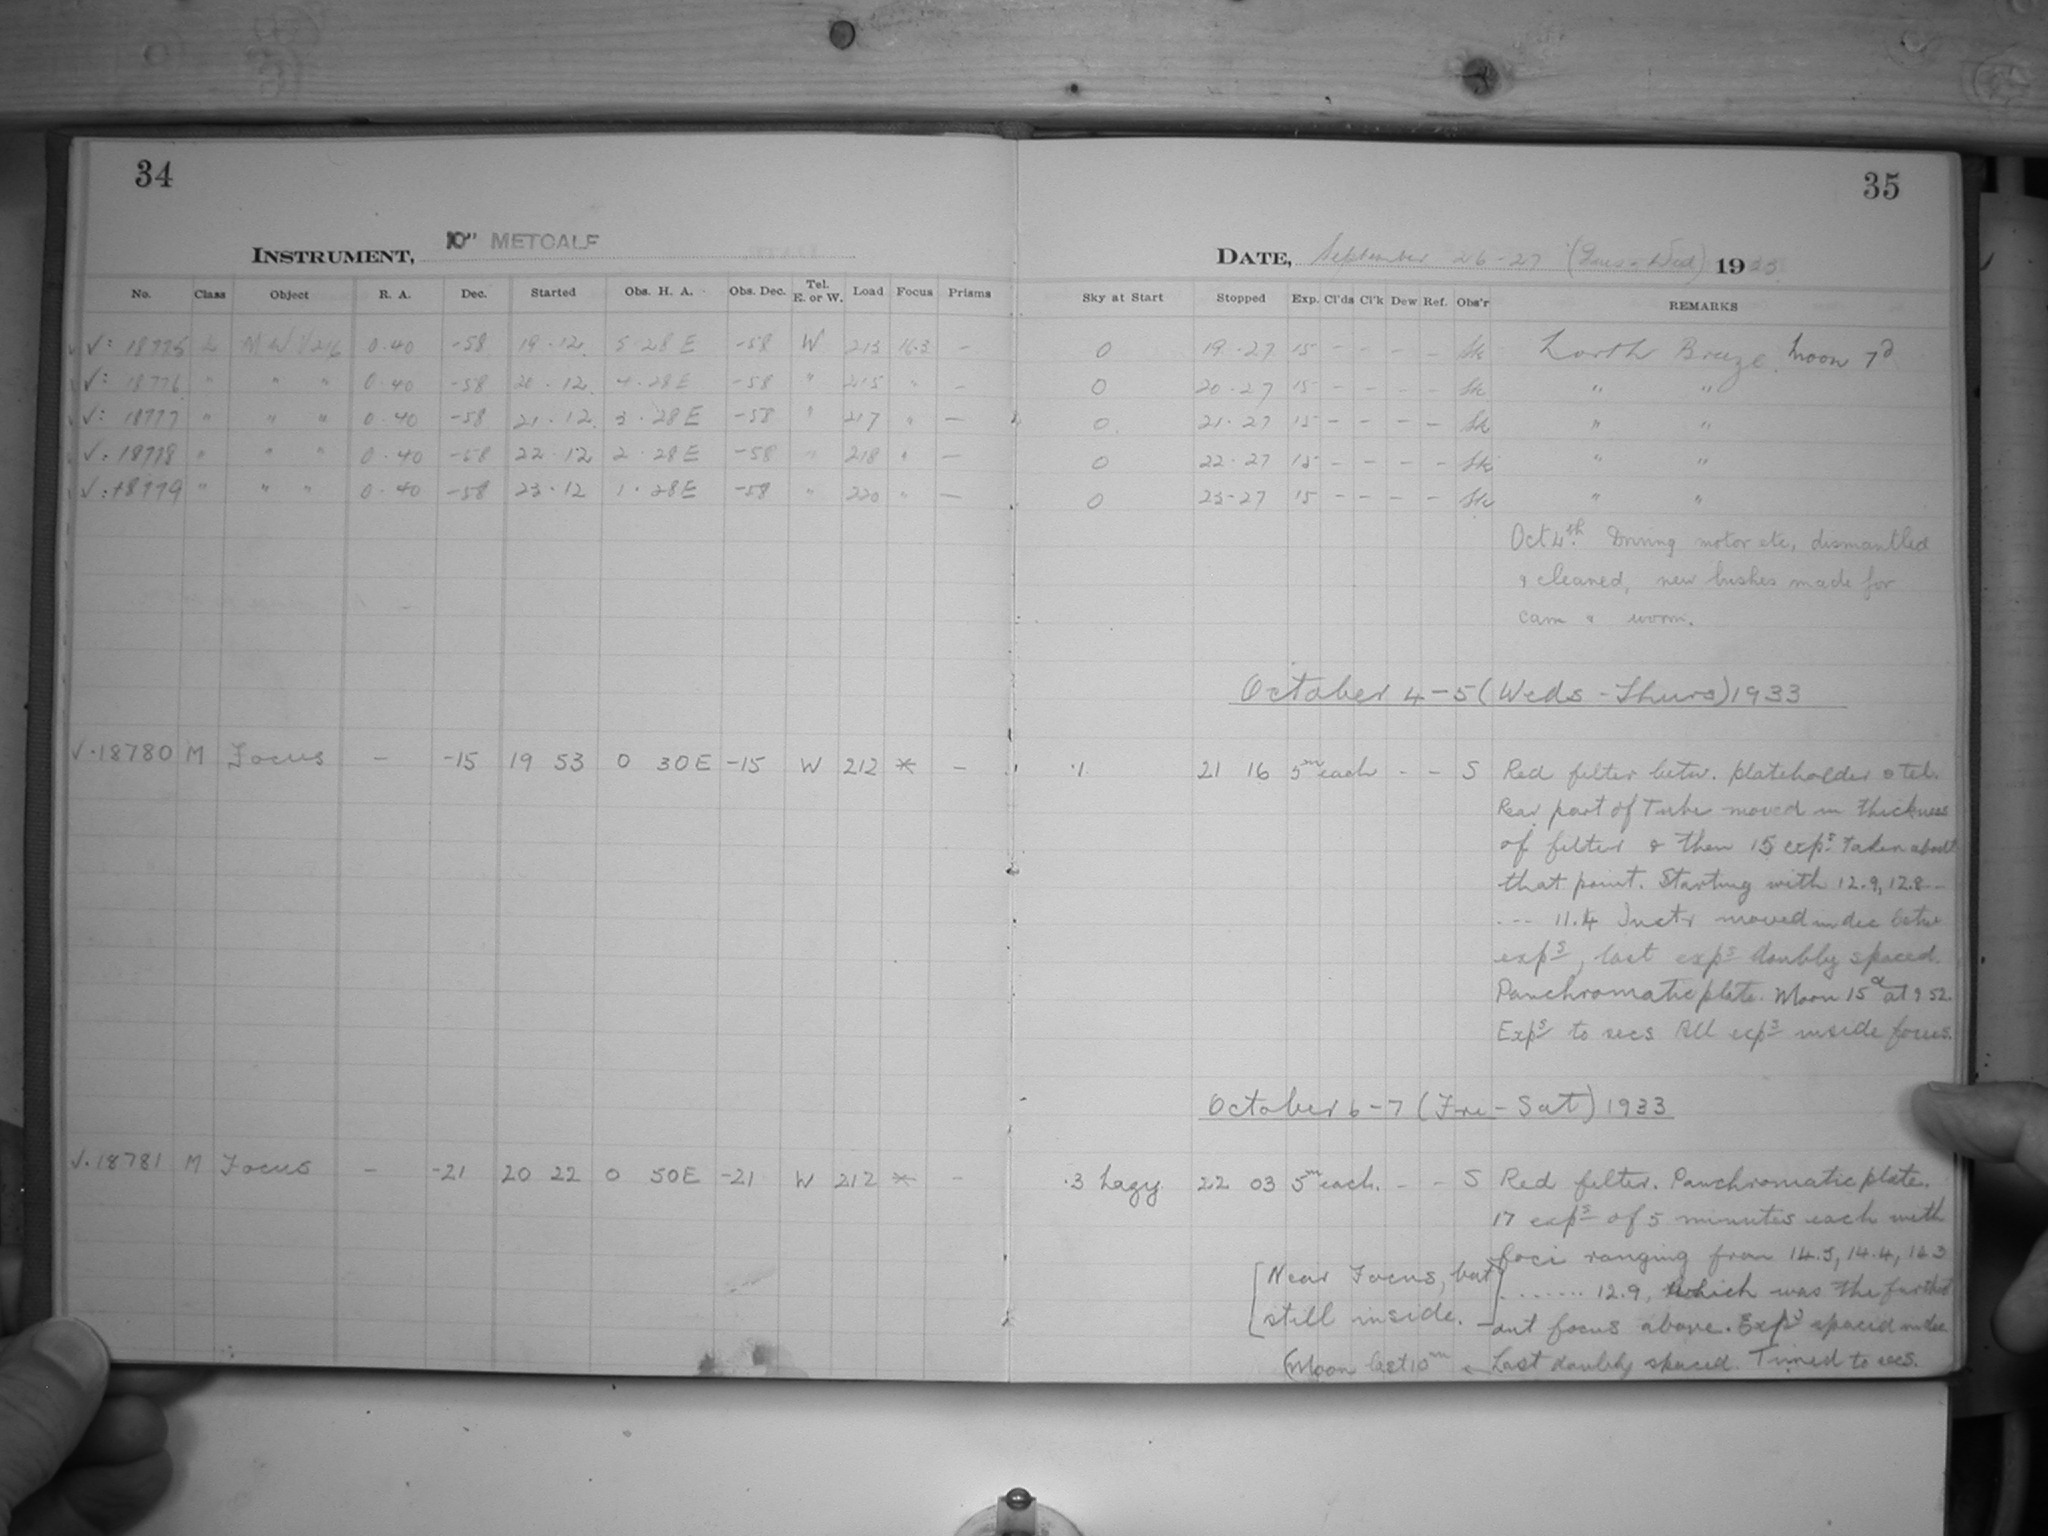 34
35
INSTRUMENT, 10" METCALF
DATE, September 26-27 (Tues - Wed) 1933
No. Class Object R. A. Dec. Started Obs. H. A. Obs. Dec. Tel. E. or W. Load Focus Prisms Sky at Start Stopped Exp. Cl'ds Cl'k Dew Ref. Obs'r REMARKS
√: 18775 L MW V 216 0.40 -58 19.12 5.28 E -58 W 213 16.3 - 0 19.27 15 - - - - Sk North Breeze. Moon 7d
√: 18776 " " " 0.40 -58 20.12 4.28 E -58 " 215 " - 0 20-27 15 - - - - Sk " "
√: 18777 " " " 0.40 -58 21.12 3.28 E -58 " 217 " - 0 21.27 15 - - - - Sk " "
√: 18778 " " " 0.40 -58 22.12 2.28 E -58 " 218 " - 0 22.27 15 - - - - Sk " "
√: 18779 " " " 0.40 -58 23.12 1.28 E -58 " 220 " - 0 23-27 15 - - - - Sk " "
Oct 4th. Driving motor etc, dismantled
& cleaned, new bushes made for
cam & worm.
October 4-5 (Weds - Thurs) 1933
√.18780 M Focus - -15 19 53 0 30 E -15 W 212 * - .1 21 16 5m each - - S Red filter betw. plateholder & tel.
Rear part of Tube moved in thickness
of filter & then 15 exps taken about
that point. Starting with 12.9, 12.8 --
--- 11.4 Instr moved in dec betw
exps, last exps doubly spaced.
Panchromatic plate. Moon 15d at 9 52.
Exps to secs All exps inside focus.
October 6-7 (Fri - Sat) 1933
√.18781 M Focus - -21 20 22 0 50 E -21 W 212 * - .3 hazy 22 03 5m each. - - S Red filter. Panchromatic plate.
17 exps of 5 minutes each with
foci ranging from 14.5, 14.4, 14.3
[Near Focus, but ........ 12.9, which was the furthest
still inside.] out focus above. Exps spaced in dec
(Moon last 10m & Last doubly spaced. Timed to secs.